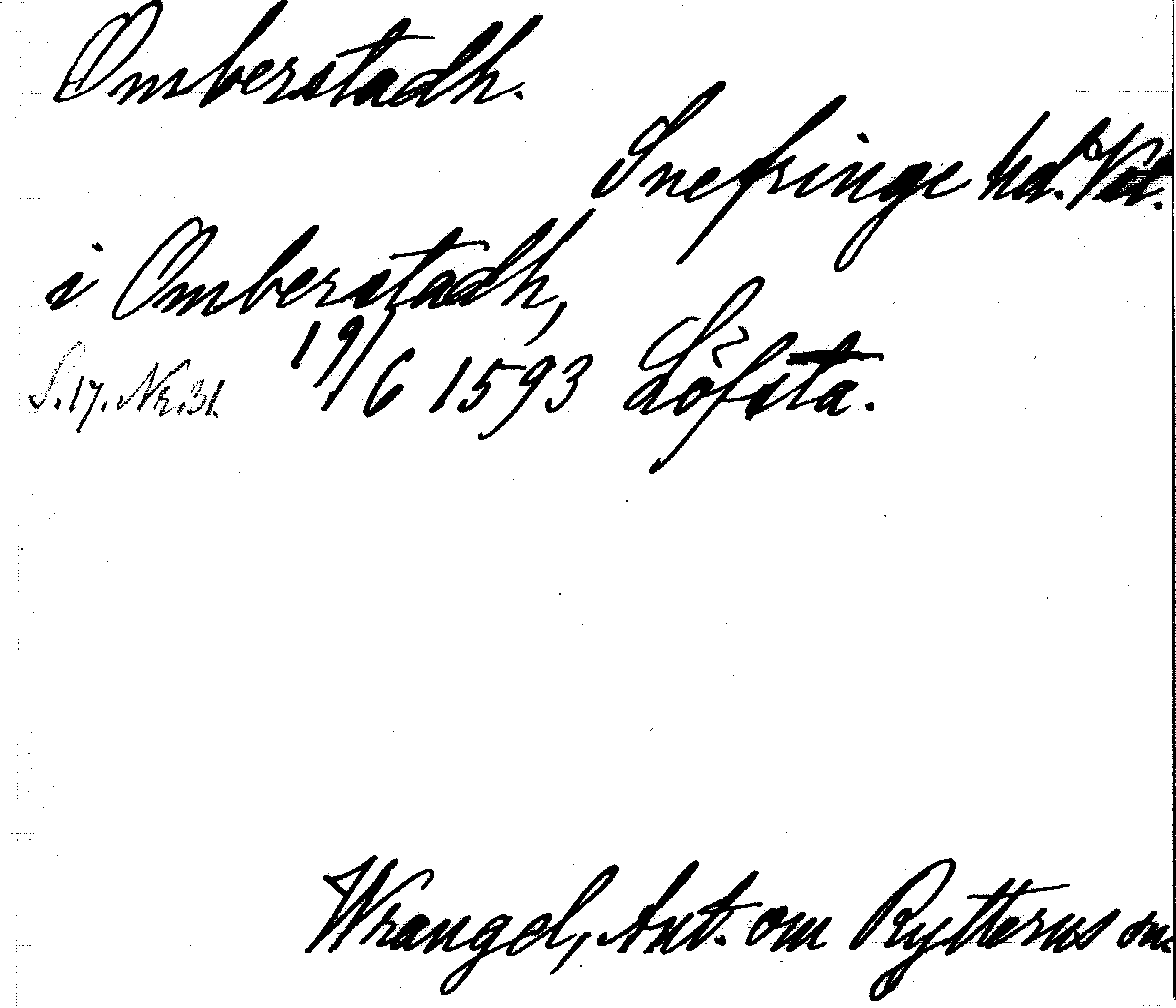 Omberstadh.
Snefringe hd. Vstl.
i Omberstadh,
S. 17. N:o 31. 19/6 1593 Löfsta.
Wrangel, Ant. om Rytterns sn.